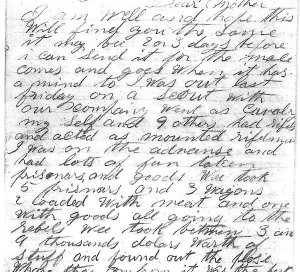 Dear Mother
I am well and hope this
Will find you the same
it may bee 2 or 3 days before
i can send it for the male
comes and goes when it has
a mind to I was out last
friday on a scout with
our Company went as Cavalry
my self and 9 others had rifles
and acted as mounted riflemen
I was on the advance and
had lots of fun taken
prisonars and goods Wee took
5 prisnars and 3 Wagons
2 loaded With meat and one
With goods all going to the
Rebels Wee took between 3 and
4 thousands dolars Warth of
stuff and found out the